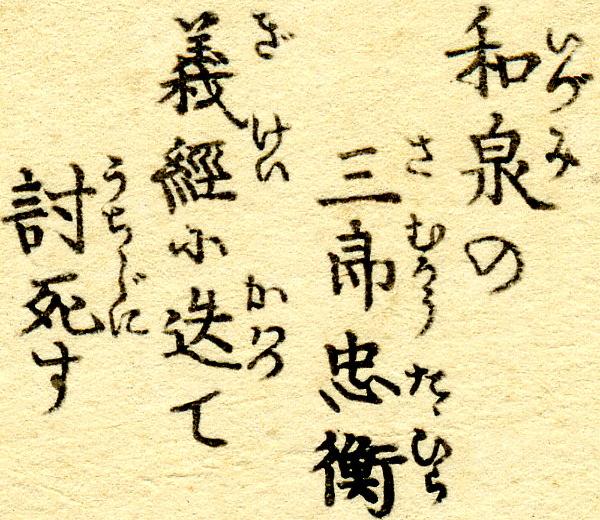 和泉の
いづみ
三郎忠衡
さむらうたゞひら
義經に迭て
ぎけいかハつ
討死す
うちじに